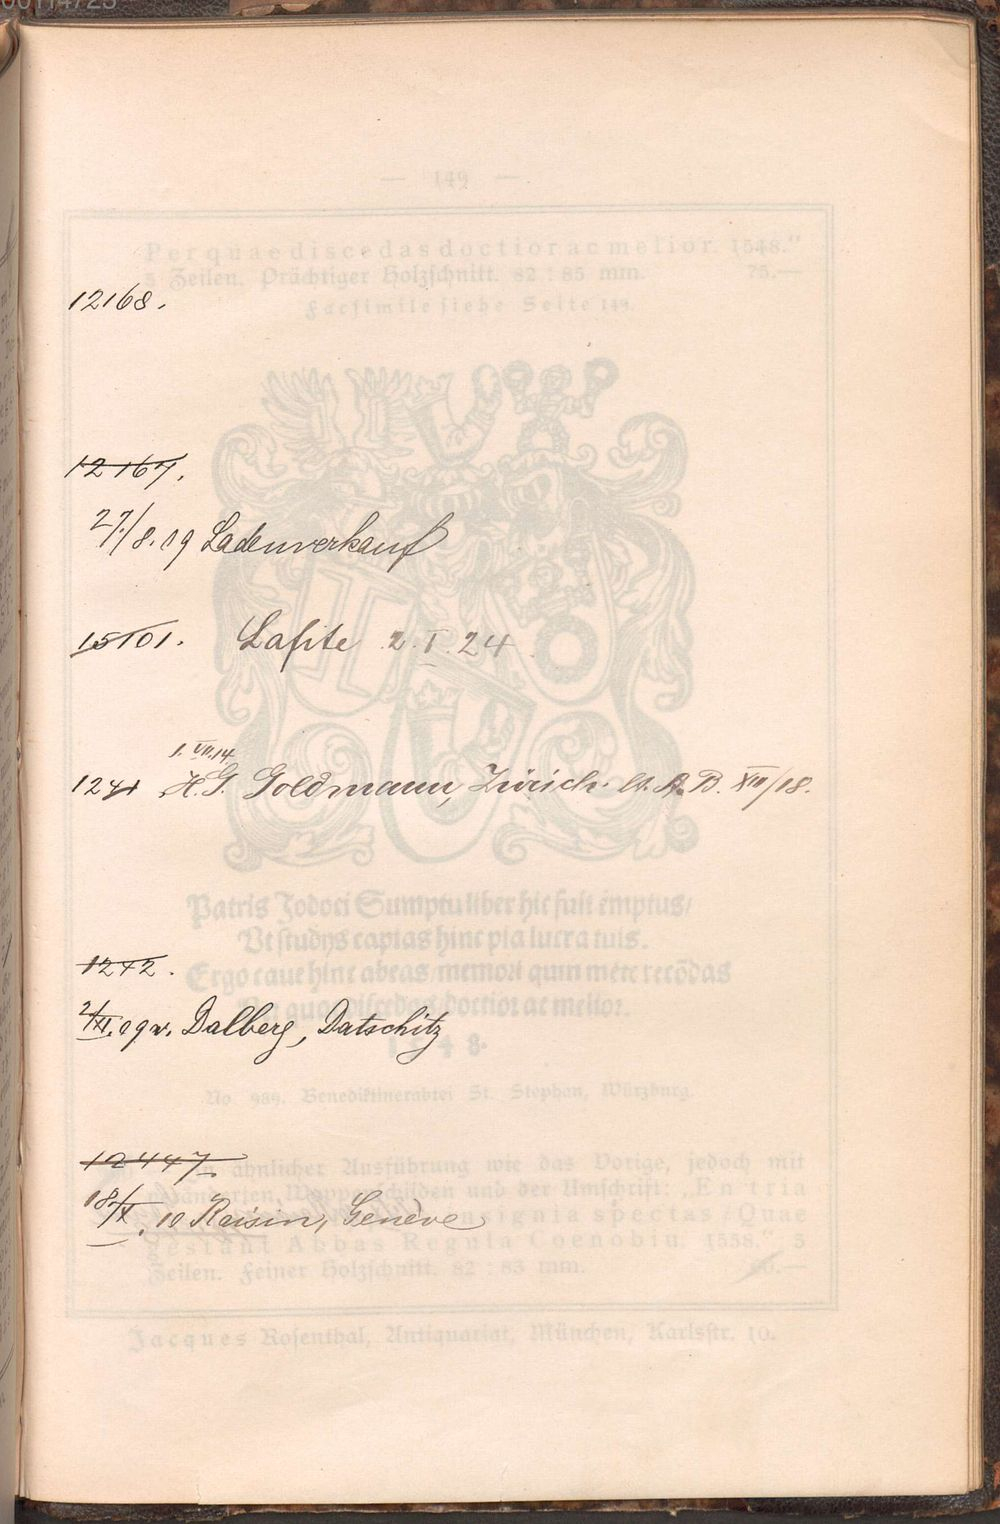 00114723
— 149 —
Per quae discedas doctior ac melior. 1548."
5 Zeilen. Prächtiger Holzschnitt. 82 : 85 mm. 75.—
Facsimile siehe Seite 149.
12168.
12167.
27./8.09 Ladenverkauf
15101. Lafite 2.I.24
1. VII.14
1241 H. G. Goldmann, Zürich. B. XII/18.
Patris Jodoci Sumptu liber hic fuit emptus/
Vt studijs capias hinc pia lucra tuis.
Ergo caue hinc abeas memori quin mēte recōdas
Per quae discedas/doctior ac melior.
1242.
2/XI.09 v. Dalberg, Datschitz
1 5 4 8.
No. 989. Benediktinerabtei St. Stephan, Würzburg.
12447.
In ähnlicher Ausführung wie das Vorige, jedoch mit
veränderten Wappenschilden und der Umschrift: „En tria
18./X. 10 Raisin, Genève
insignia spectas Quae
gestant Abbas Regula Coenobiu. 1558." 5
Zeilen. Feiner Holzschnitt. 82 : 83 mm. 60.—
Jacques Rosenthal, Antiquariat, München, Karlstr. 10.